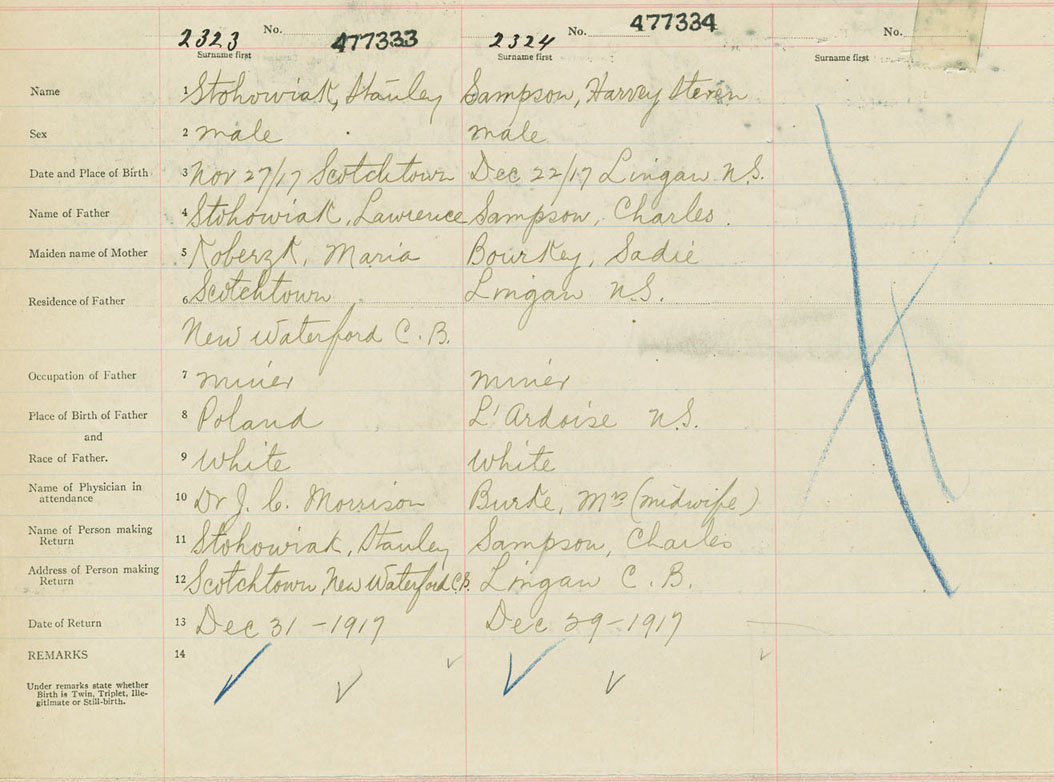 2323 No. 477333 2324 No. 477334 No.
Surname first Surname first Surname first
Name 1 Stohowiak, Stanley Sampson, Harvey Steven
Sex 2 male male
Date and Place of Birth 3 Nov 27/17 Scotchtown Dec 22/17 Lingan N.S.
Name of Father 4 Stohowiak, Lawrence Sampson, Charles
Maiden name of Mother 5 Koberzk, Maria Bourkey, Sadie
Residence of Father 6 Scotchtown Lingan N.S.
New Waterford C.B.
Occupation of Father 7 miner miner
Place of Birth of Father 8 Poland L'Ardoise N.S.
and
Race of Father. 9 White White
Name of Physician in
attendance 10 Dr J. C. Morrison Burke, Mrs (midwife)
Name of Person making
Return 11 Stohowiak, Stanley Sampson, Charles
Address of Person making
Return 12 Scotchtown, New Waterford C.B. Lingan C.B.
Date of Return 13 Dec 31-1917 Dec 29-1917
REMARKS 14
Under remarks state whether
Birth is Twin, Triplet, Ille-
gitimate or Still-birth.